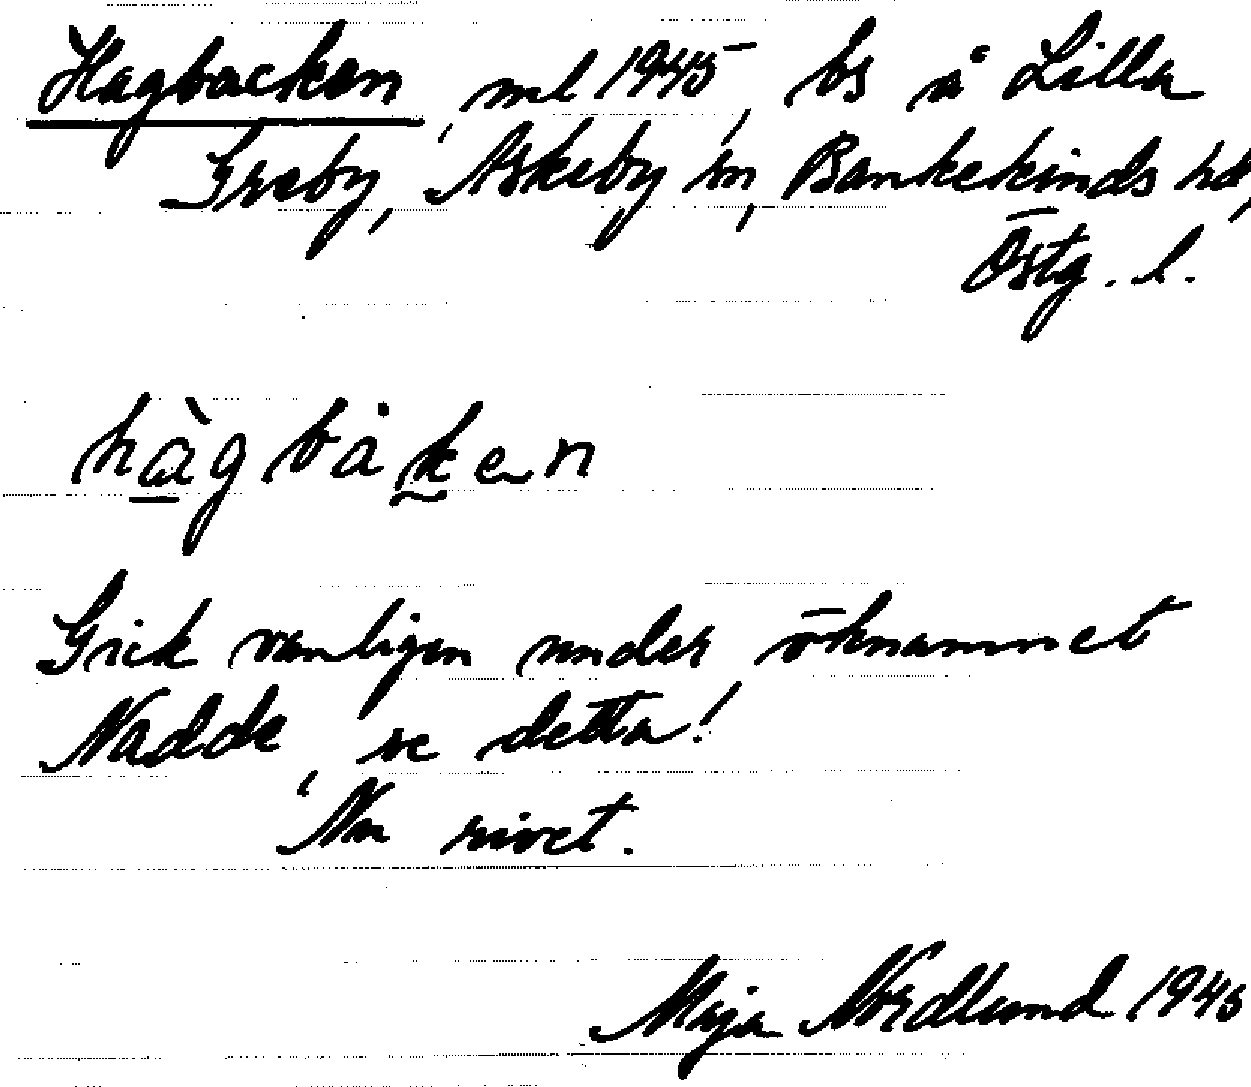 Hagbacken, ml 1945, bs å Lilla
Greby, Askeby sn, Bankekinds hd,
Östg. l.
hàgbåken
Gick vanligen under öknamnet
Nadde, se detta!
Nu rivet.
Maja Nordlund 1945